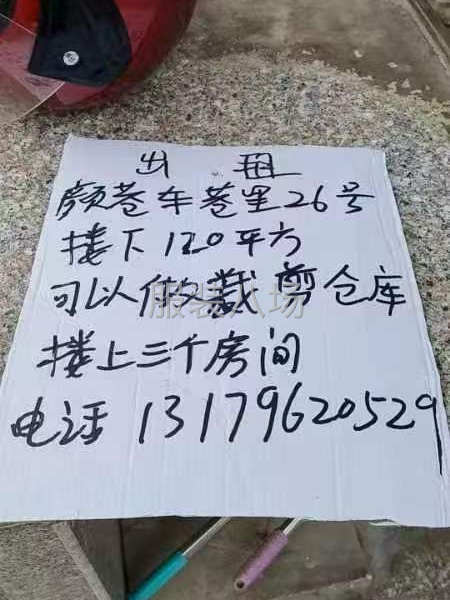 出租
颜巷车巷里26号
搂下120平方
可以做裁剪仓库
搂上三个房间
电话13179620529
服装人场